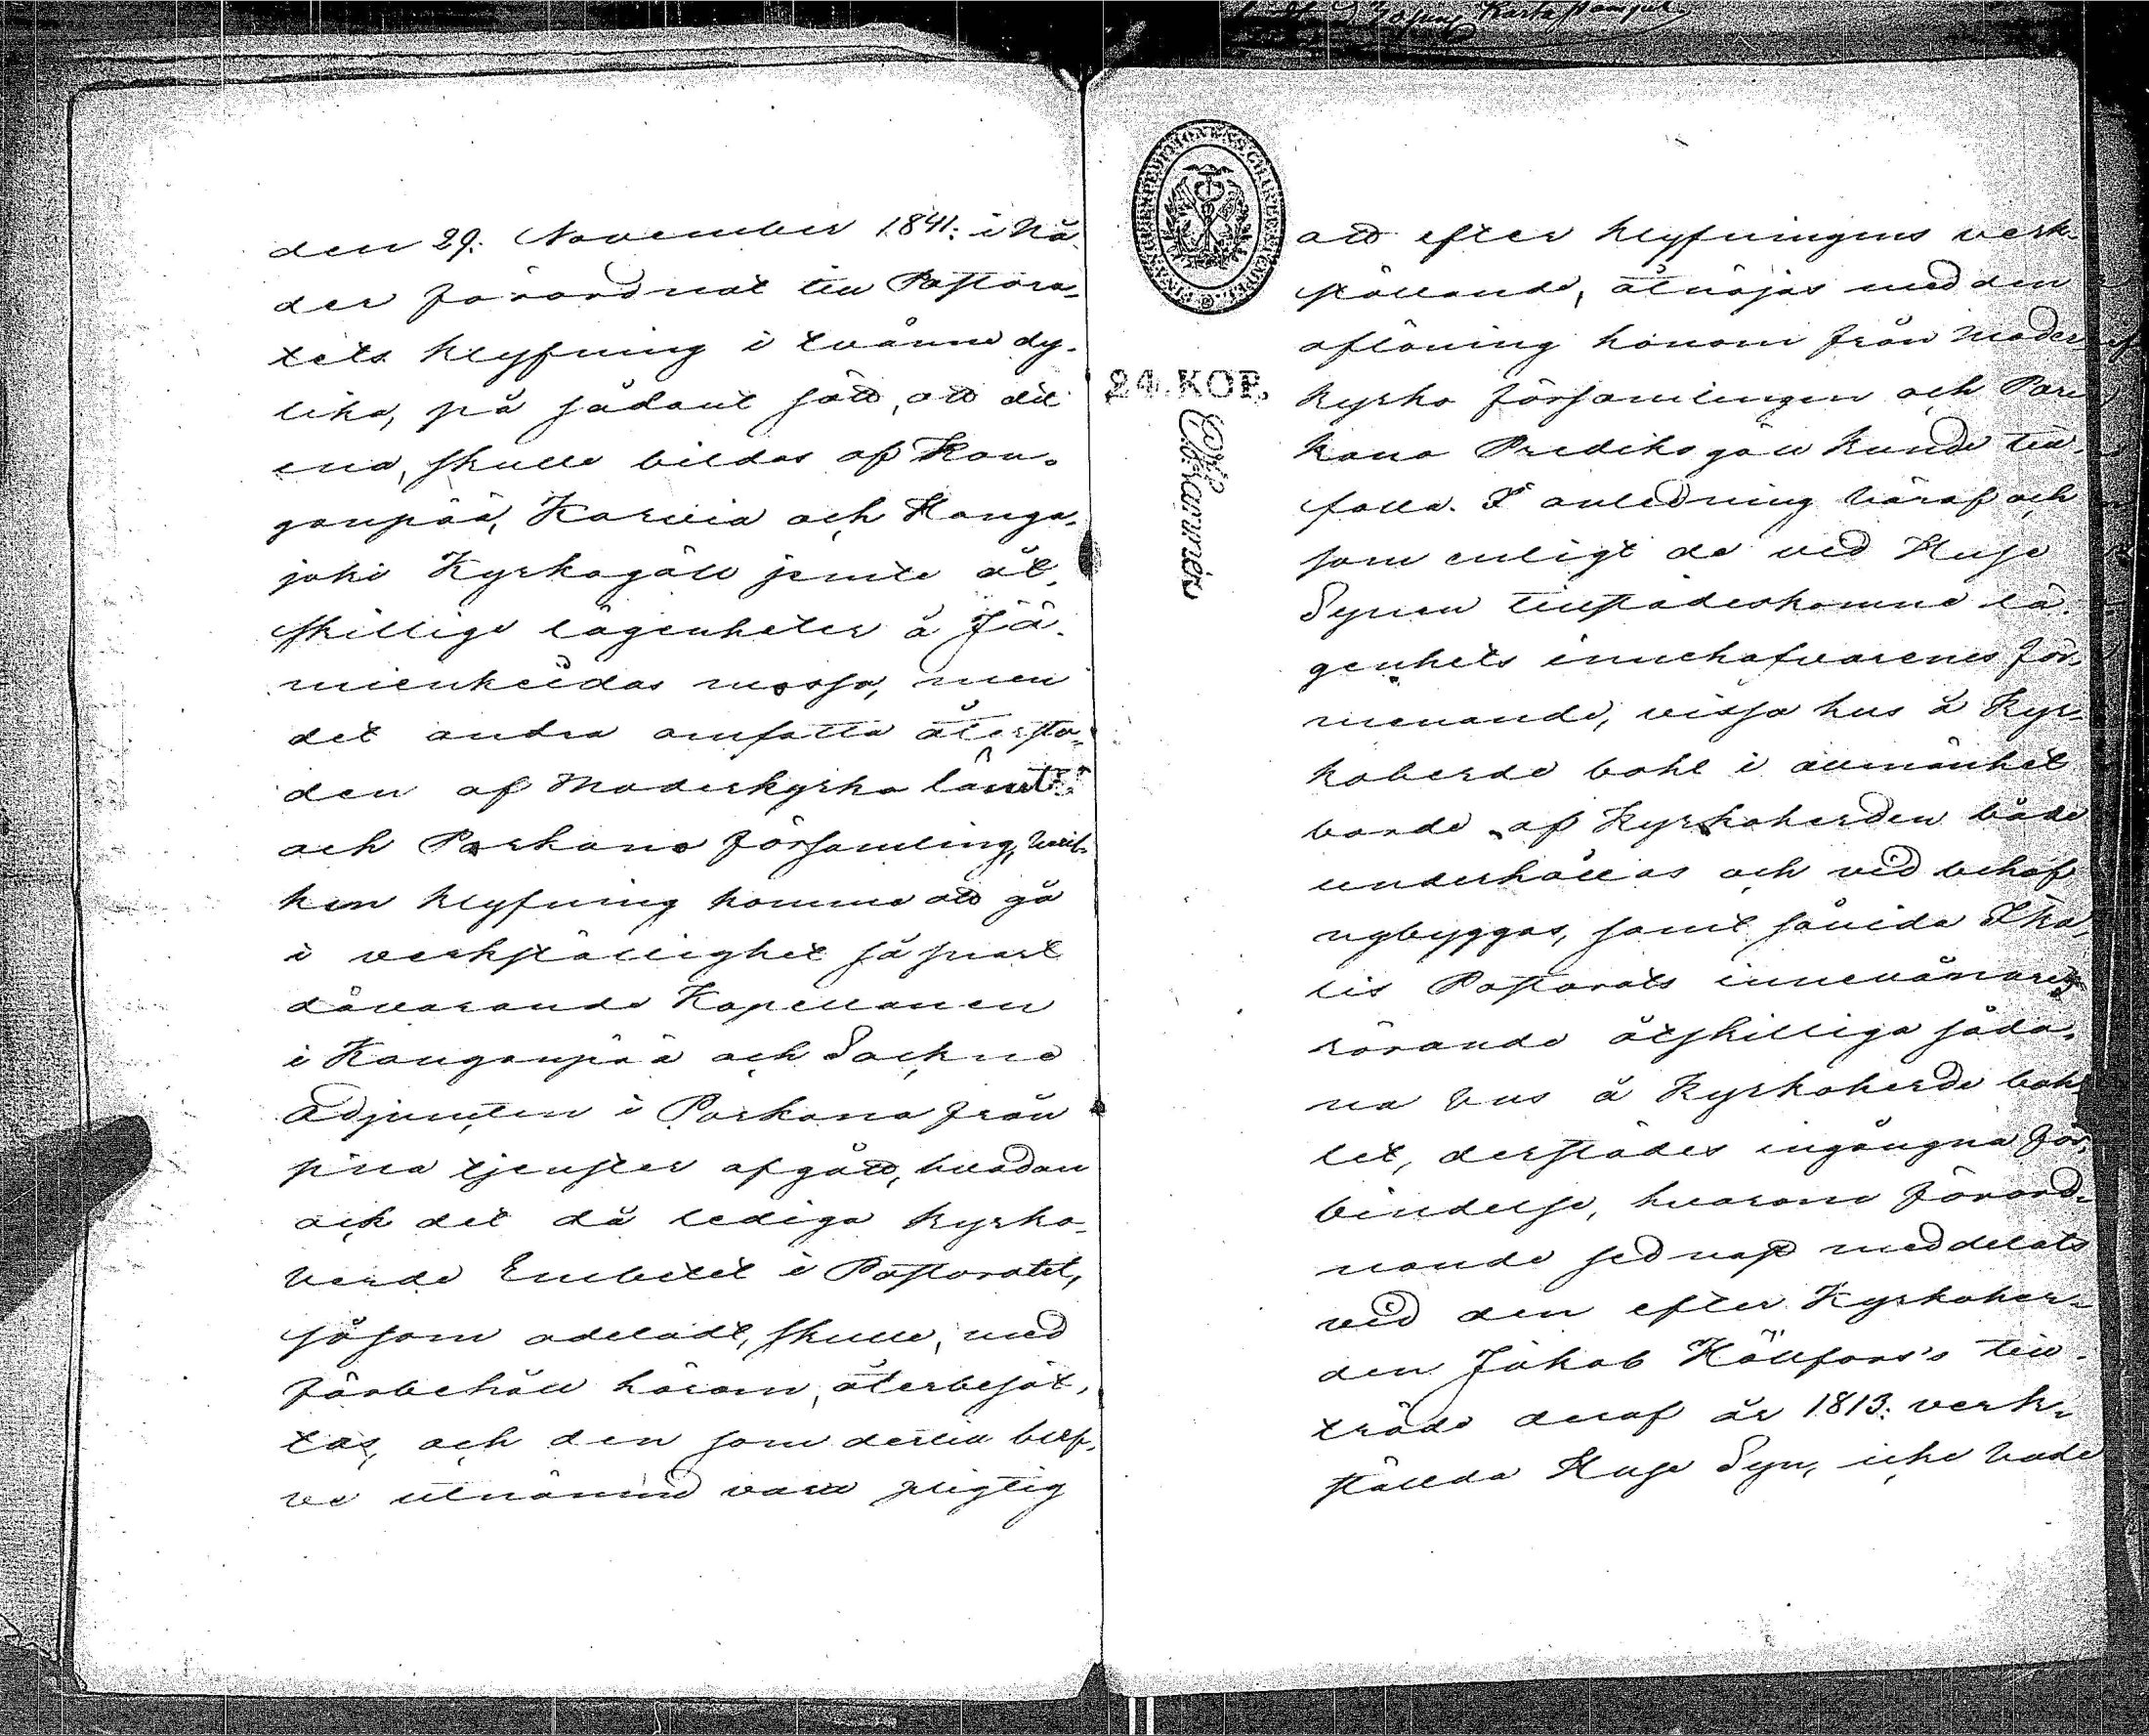 den 29. November 1841: i Nå¬
der förordnat till Pastora¬
tets klyfning i tvänne dy¬
lika, på sådant sätt, att det
ena, skulle bildas af Kan¬
ganpää, Karvia och Honga¬
joki Kyrkogäll jemte åt¬
skillige lägenheter å Jä¬
mienkeidas mossa, men
det andra omfatta återsto¬
den af Moderkyrko
och Parkano församling, hvil¬
ken klyfning komme att gå
i verkställighet så snart
dåvarande Kapellanen
i Kanganpää och Sockne
Adjuncten i Parkano från
sina tjenster afgått, hvadan
ock det då lediga Kyrko¬
herde Embetet i Pastoratet,
såsom odeladt, skulle, med
förbehåll härom, återbesät¬
tas, och den som dertill blef¬
ve utnämnd vara pligtig
24. KOP.
att efter klyfningens verk¬
ställande, åtnöjas med den
aflöning honom från Moder¬
kyrko församlingen och Par¬
kano Predikogäll kunde till¬
falla. I anledning häraf och
som enligt de vid Huse
Synen tillstädeskomne lä¬
genhets innehafvarenes för¬
menande, vissa hus å Kyr¬
koherde bohl i allmänhet
borde af Kyrkoherden både
underhållas och vid behof
nybyggas, samt såvida Ika¬
lis Pastorats innevånares
rörande åtskilliga såda¬
na hus å Kyrkoherde boh¬
let, derstädes ingångna för¬
bindelse, hvarom förord¬
nande sednast meddelats
vid den efter Kyrkoher¬
den Jakob Hällfors's till¬
träde deraf år 1813: verk¬
ställda Huse Syn, icke hade